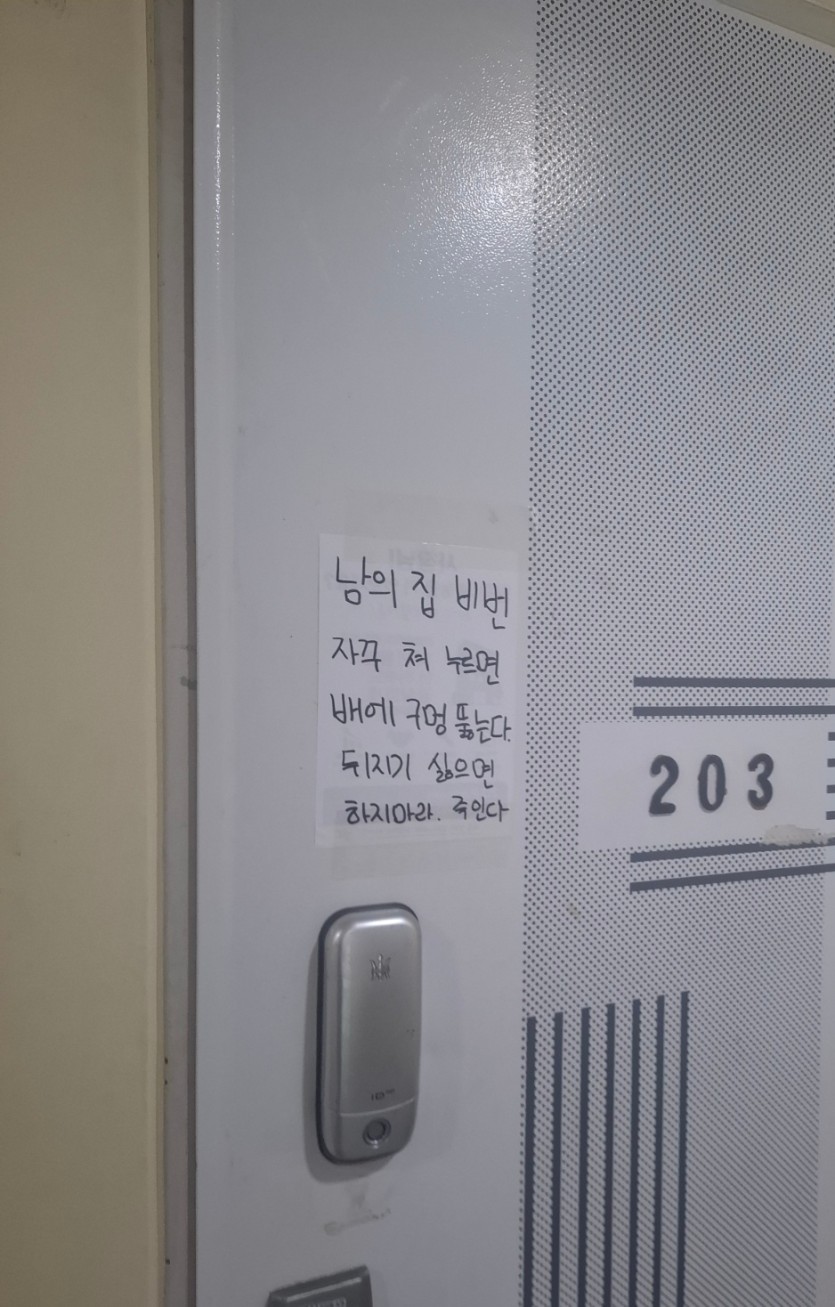 남의 집 비번
자꾸 쳐 누르면
배에 구멍 뚫는다.
뒤지기 싫으면
하지마라. 죽인다
203